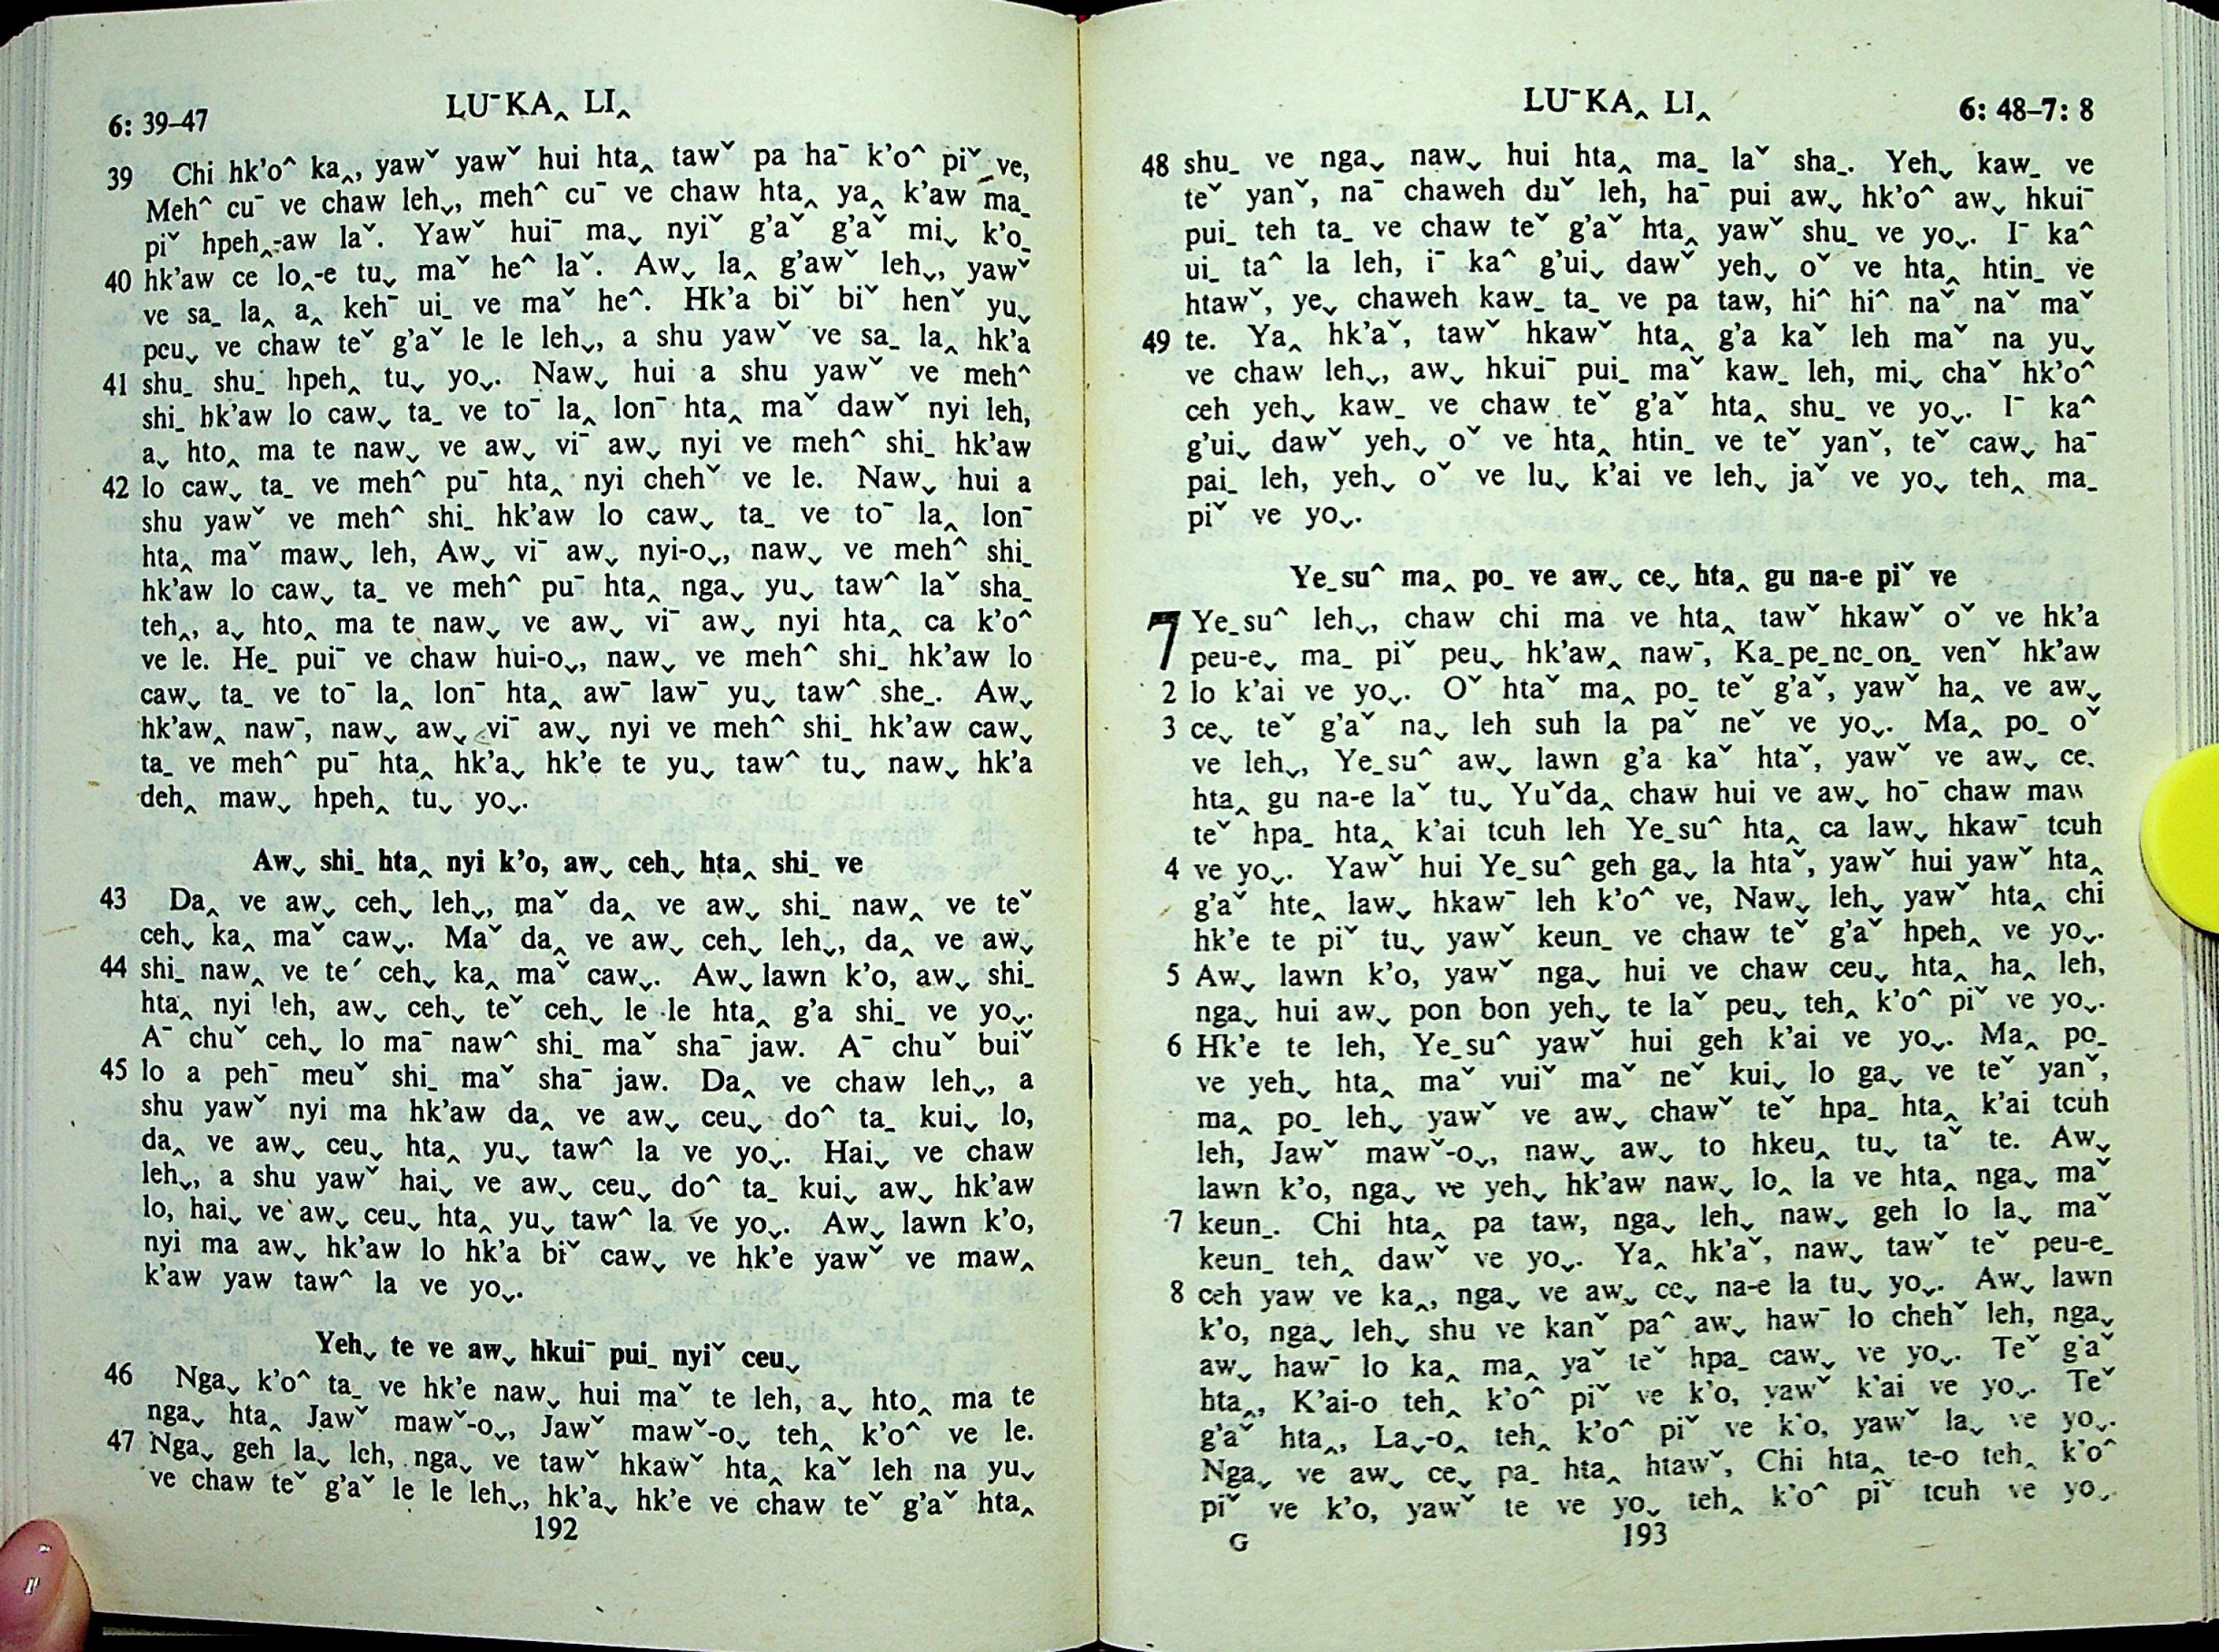 6: 39–47
LUˉKA‸ LI‸
39 Chi hk'o^ ka‸, yawˇ yawˇ hui hta‸ tawˇ pa haˉ k'o^ piˇ ve,
Meh^ cuˉ ve chaw lehˬ, meh^ cuˉ ve chaw hta‸ ya‸ k'aw ma_
piˇ hpeh‸-aw laˇ. Yawˇ huiˉ maˬ nyiˇ g'aˇ g'aˇ miˬ k'o_
40 hk'aw ce lo‸-e tuˬ maˇ he^ laˇ. Awˬ la‸ g'awˇ lehˬ, yawˇ
ve sa_ la‸ a‸ kehˉ ui_ ve maˇ he^. Hk'a biˇ biˇ henˇ yuˬ
peuˬ ve chaw teˇ g'aˇ le le lehˬ, a shu yawˇ ve sa_ la‸ hk'a
41 shu_ shu_ hpeh‸ tuˬ yoˬ. Nawˬ hui a shu yawˇ ve meh^
shi_ hk'aw lo cawˬ ta_ ve toˉ la‸ lonˉ hta‸ maˇ dawˇ nyi leh,
aˬ hto‸ ma te nawˬ ve awˬ viˉ awˬ nyi ve meh^ shi_ hk'aw
42 lo cawˬ ta_ ve meh^ puˉ hta‸ nyi chehˇ ve le. Nawˬ hui a
shu yawˇ ve meh^ shi_ hk'aw lo cawˬ ta_ ve toˉ la‸ lonˉ
hta‸ maˇ mawˬ leh, Awˬ viˉ awˬ nyi-oˬ, nawˬ ve meh^ shi_
hk'aw lo cawˬ ta_ ve meh^ puˉ hta‸ ngaˬ yuˬ taw^ laˇ sha_
teh‸, aˬ hto‸ ma te nawˬ ve awˬ viˉ awˬ nyi hta‸ ca k'o^
ve le. He_ puiˉ ve chaw hui-oˬ, nawˬ ve meh^ shi_ hk'aw lo
cawˬ ta_ ve toˉ la‸ lonˉ hta‸ awˉ lawˉ yuˬ taw^ she_. Awˬ
hk'aw‸ nawˉ, nawˬ awˬ viˉ awˬ nyi ve meh^ shi_ hk'aw cawˬ
ta_ ve meh^ puˉ hta‸ hk'aˬ hk'e te yuˬ taw^ tuˬ nawˬ hk'a
deh‸ mawˬ hpeh‸ tuˬ yoˬ.
Awˬ shi_ hta‸ nyi k'o, awˬ cehˬ hta‸ shi_ ve
43 Da‸ ve awˬ cehˬ lehˬ, maˇ da‸ ve awˬ shi_ naw‸ ve teˇ
cehˬ ka‸ maˇ cawˬ. Maˇ da‸ ve awˬ cehˬ lehˬ, da‸ ve awˬ
44 shi_ naw‸ ve te´ cehˬ ka‸ maˇ cawˬ. Awˬ lawn k'o, awˬ shi_
hta‸ nyi leh, awˬ cehˬ teˇ cehˬ le le hta‸ g'a shi_ ve yoˬ.
Aˉ chuˇ cehˬ lo maˉ naw^ shi_ maˇ shaˉ jaw. Aˉ chuˇ buiˇ
45 lo a pehˉ meuˇ shi_ maˇ shaˉ jaw. Da‸ ve chaw lehˬ, a
shu yawˇ nyi ma hk'aw da‸ ve awˬ ceuˬ do^ ta_ kuiˬ lo,
da‸ ve awˬ ceuˬ hta‸ yuˬ taw^ la ve yoˬ. Haiˬ ve chaw
lehˬ, a shu yawˇ haiˬ ve awˬ ceuˬ do^ ta_ kuiˬ awˬ hk'aw
lo, haiˬ ve awˬ ceuˬ hta‸ yuˬ taw^ la ve yoˬ. Awˬ lawn k'o,
nyi ma awˬ hk'aw lo hk'a biˇ cawˬ ve hk'e yawˇ ve maw‸
k'aw yaw taw^ la ve yoˬ.
Yehˬ te ve awˬ hkuiˉ pui_ nyiˇ ceuˬ
46 Ngaˬ k'o^ ta_ ve hk'e nawˬ hui maˇ te leh, aˬ hto‸ ma te
ngaˬ hta‸ Jawˇ mawˇ-oˬ, Jawˇ mawˇ-oˬ teh‸ k'o^ ve le.
47 Ngaˬ geh laˬ leh, ngaˬ ve tawˇ hkawˇ hta‸ kaˇ leh na yuˬ
ve chaw teˇ g'aˇ le le lehˬ, hk'aˬ hk'e ve chaw teˇ g'aˇ hta‸
192
LUˉKA‸ LI‸
6: 48–7: 8
48 shu_ ve ngaˬ nawˬ hui hta‸ ma_ laˇ sha_. Yehˬ kaw_ ve
teˇ yanˇ, naˉ chaweh duˇ leh, haˉ pui awˬ hk'o^ awˬ hkuiˉ
pui_ teh ta_ ve chaw teˇ g'aˇ hta‸ yawˇ shu_ ve yoˬ. Iˉ ka^
ui_ ta^ la leh, iˉ ka^ g'uiˬ dawˇ yehˬ oˇ ve hta‸ htin_ ve
htawˇ, yeˬ chaweh kaw_ ta_ ve pa taw, hi^ hi^ naˇ naˇ maˇ
49 te. Ya‸ hk'aˇ, tawˇ hkawˇ hta‸ g'a kaˇ leh maˇ na yuˬ
ve chaw lehˬ, awˬ hkuiˉ pui_ maˇ kaw_ leh, miˬ chaˇ hk'o^
ceh yehˬ kaw_ ve chaw teˇ g'aˇ hta‸ shu_ ve yoˬ. Iˉ ka^
g'uiˬ dawˇ yehˬ oˇ ve hta‸ htin_ ve teˇ yanˇ, teˇ cawˬ haˉ
pai_ leh, yehˬ oˇ ve luˬ k'ai ve lehˬ jaˇ ve yoˬ teh‸ ma_
piˇ ve yoˬ.
Ye_su^ ma‸ po_ ve awˬ ceˬ hta‸ gu na-e piˇ ve
7 Ye_su^ lehˬ, chaw chi ma ve hta‸ tawˇ hkawˇ oˇ ve hk'a
peu-eˬ ma_ piˇ peuˬ hk'aw‸ nawˉ, Ka_pe_ne_on_ venˇ hk'aw
2 lo k'ai ve yoˬ. Oˇ htaˇ ma‸ po_ teˇ g'aˇ, yawˇ ha‸ ve awˬ
3 ceˬ teˇ g'aˇ naˬ leh suh la paˇ neˇ ve yoˬ. Ma‸ po_ oˇ
ve lehˬ, Ye_su^ awˬ lawn g'a kaˇ htaˇ, yawˇ ve awˬ ceˬ
hta‸ gu na-e laˇ tuˬ Yuˇda‸ chaw hui ve awˬ hoˉ chaw maw
teˇ hpa_ hta‸ k'ai tcuh leh Ye_su^ hta‸ ca lawˬ hkawˉ tcuh
4 ve yoˬ. Yawˇ hui Ye_su^ geh gaˬ la htaˇ, yawˇ hui yawˇ hta‸
g'aˇ hte‸ lawˬ hkawˉ leh k'o^ ve, Nawˬ lehˬ yawˇ hta‸ chi
hk'e te piˇ tuˬ yawˇ keun_ ve chaw teˇ g'aˇ hpeh‸ ve yoˬ.
5 Awˬ lawn k'o, yawˇ ngaˬ hui ve chaw ceuˬ hta‸ ha‸ leh,
ngaˬ hui awˬ pon bon yehˬ te laˇ peuˬ teh‸ k'o^ piˇ ve yoˬ.
6 Hk'e te leh, Ye_su^ yawˇ hui geh k'ai ve yoˬ. Ma‸ po_
ve yehˬ hta‸ maˇ vuiˇ maˇ neˇ kuiˬ lo gaˬ ve teˇ yanˇ,
ma‸ po_ lehˬ yawˇ ve awˬ chawˇ teˇ hpa_ hta‸ k'ai tcuh
leh, Jawˇ mawˇ-oˬ, nawˬ awˬ to hkeu‸ tuˬ taˇ te. Awˬ
lawn k'o, ngaˬ ve yehˬ hk'aw nawˬ lo‸ la ve hta‸ ngaˬ maˇ
7 keun_. Chi hta‸ pa taw, ngaˬ lehˬ nawˬ geh lo laˬ maˇ
keun_ teh‸ dawˇ ve yoˬ. Ya‸ hk'aˇ, nawˬ tawˇ teˇ peu-e_
8 ceh yaw ve ka‸, ngaˬ ve awˬ ceˬ na-e la tuˬ yoˬ. Awˬ lawn
k'o, ngaˬ lehˬ shu ve kanˇ pa^ awˬ hawˉ lo chehˇ leh, ngaˬ
awˬ hawˉ lo ka‸ ma‸ yaˇ teˇ hpa_ cawˬ ve yoˬ. Teˇ g'aˇ
hta‸, K'ai-o teh‸ k'o^ piˇ ve k'o, yawˇ k'ai ve yoˬ. Teˇ
g'aˇ hta‸, Laˬ-o‸ teh‸ k'o^ piˇ ve k'o, yawˇ laˬ ve yoˬ.
Ngaˬ ve awˬ ceˬ pa_ hta‸ htawˇ, Chi hta‸ te-o teh‸ k'o^
piˇ ve k'o, yawˇ te ve yoˬ teh‸ k'o^ piˇ tcuh ve yoˬ.
G 193